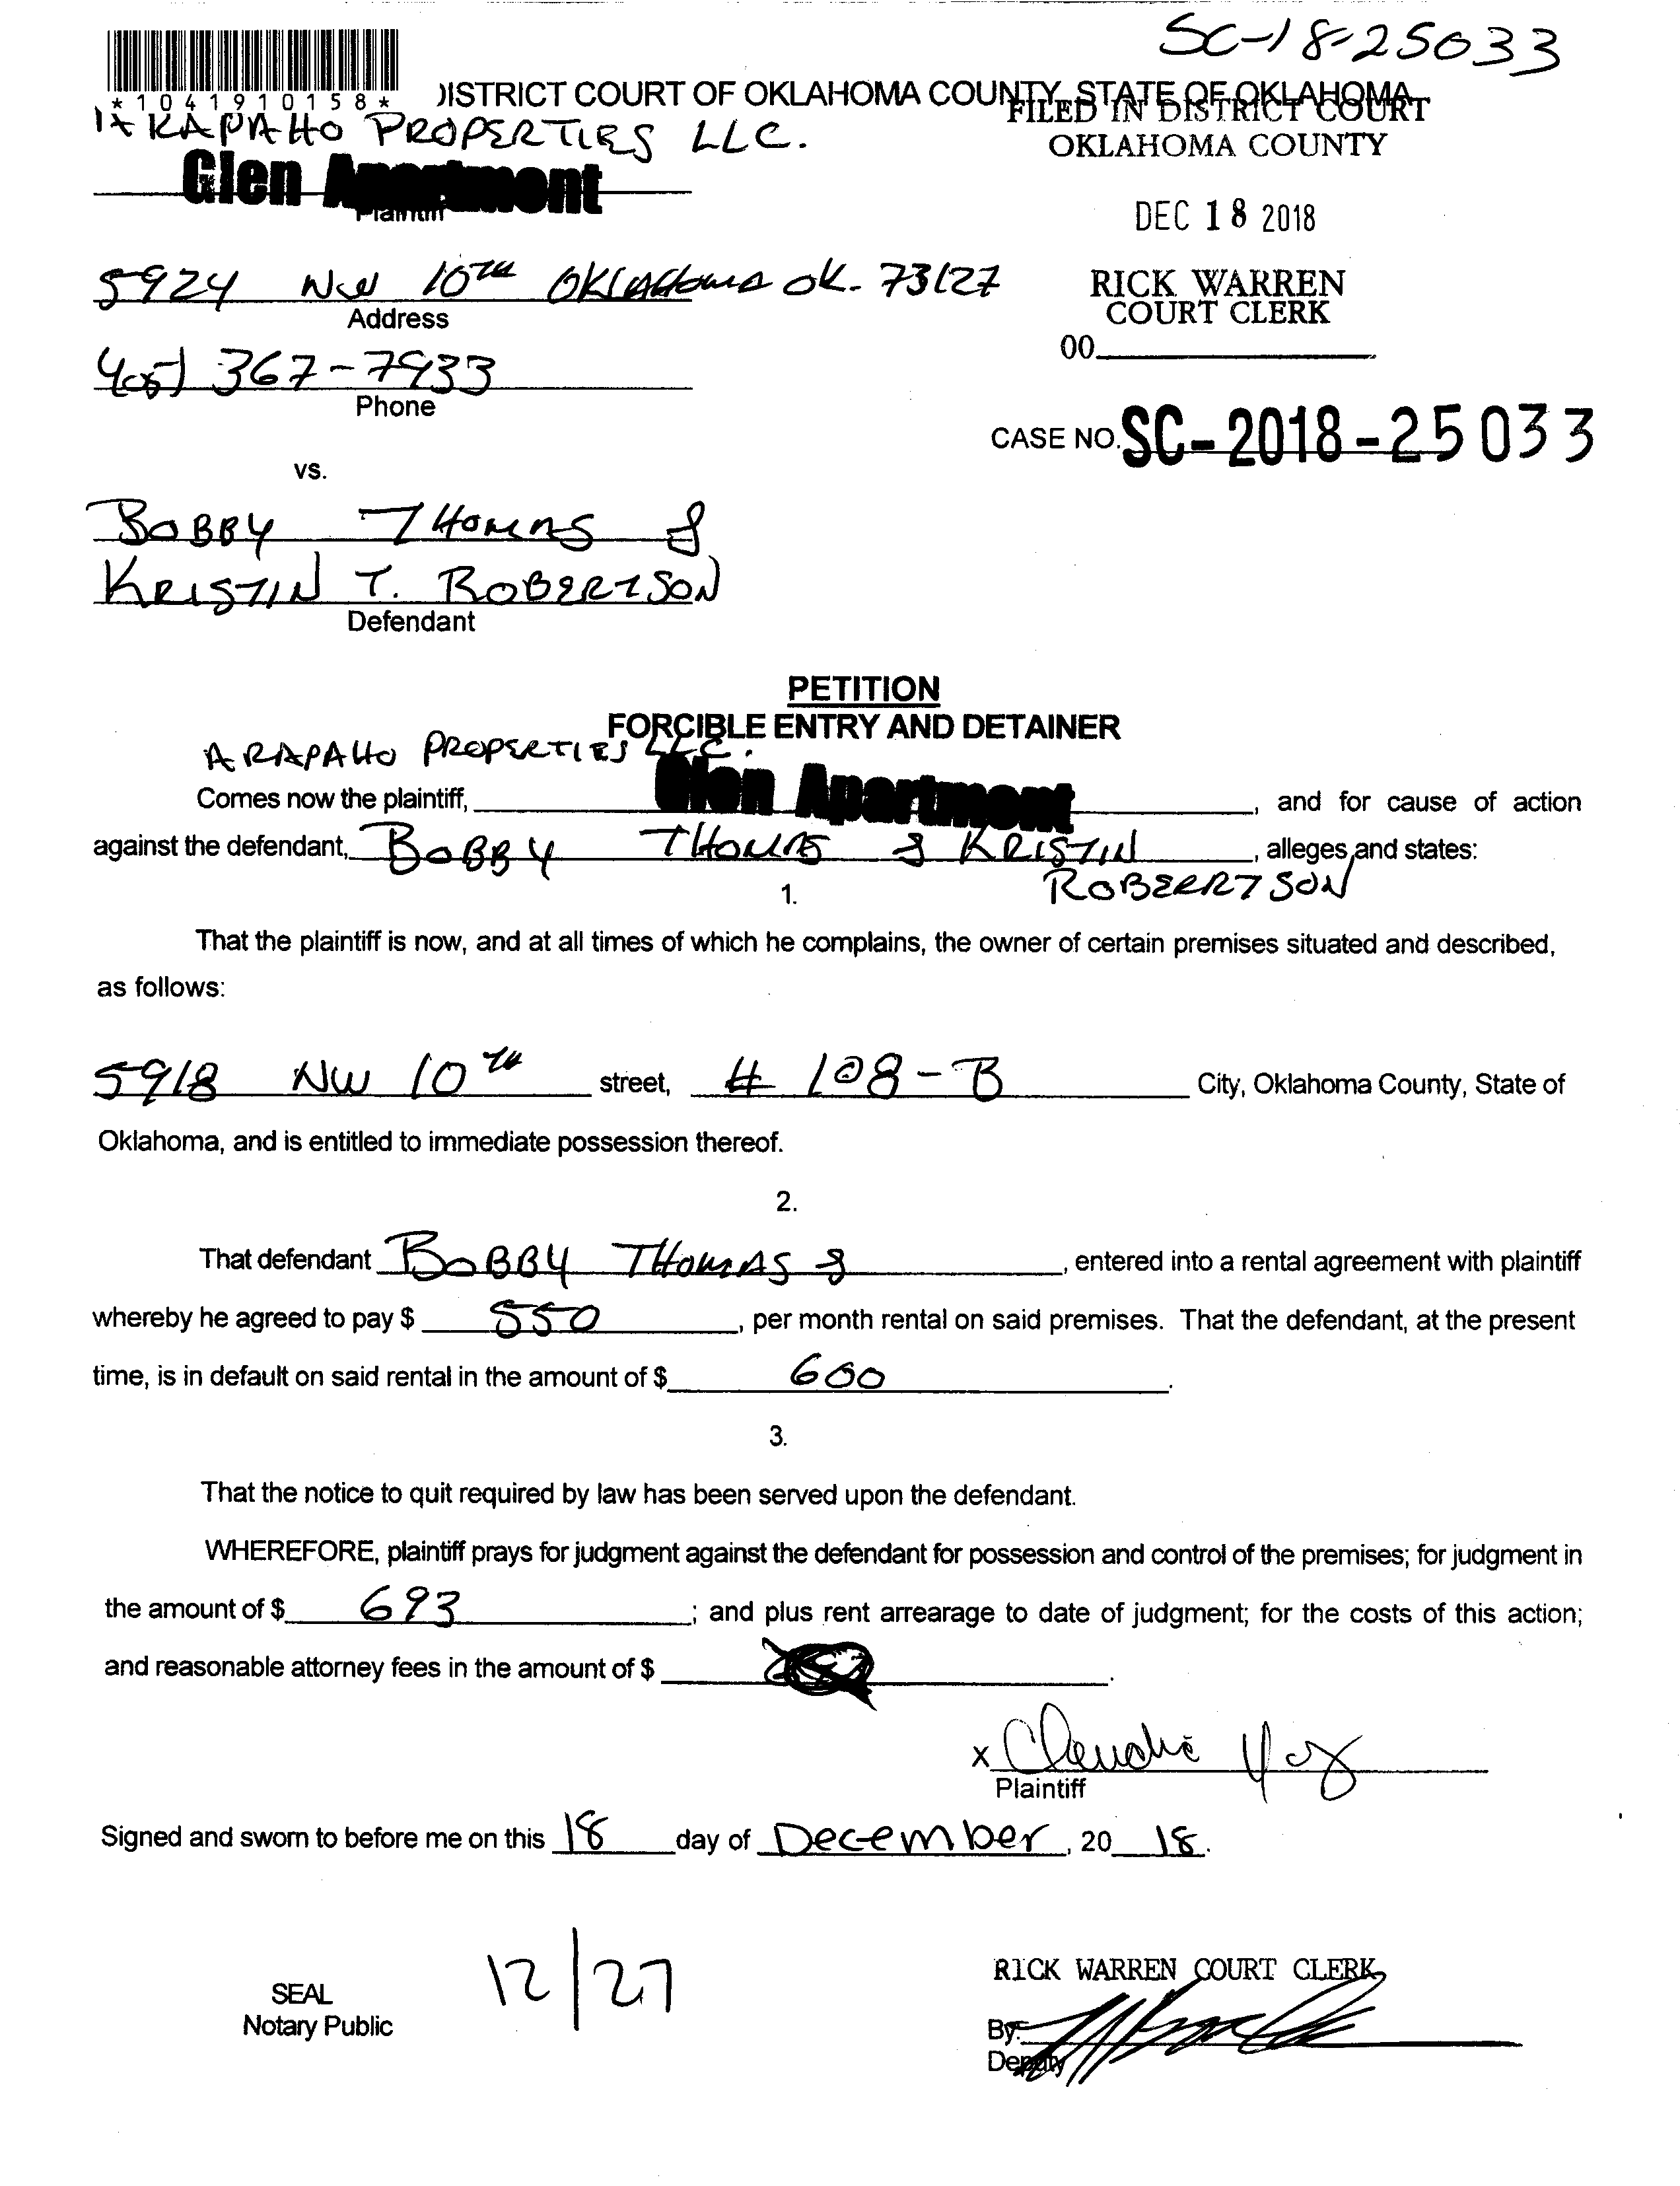 SC-18-25033
*1041910158*
DISTRICT COURT OF OKLAHOMA COUNTY, STATE OF OKLAHOMA
FILED IN DISTRICT COURT
ARAPAHO PROPERTIES LLC.
OKLAHOMA COUNTY
Glen Apartment
Plaintiff
DEC 18 2018
5924 NW 10TH OKLAHOMA OK. 73127
Address
RICK WARREN
COURT CLERK
00
405) 367-7933
Phone
CASE NO. SC-2018-25033
vs.
BOBBY THOMAS &
KRISTIN T. ROBERTSON
Defendant
PETITION
FORCIBLE ENTRY AND DETAINER
ARAPAHO PROPERTIES LLC.
Comes now the plaintiff, Glen Apartment, and for cause of action
against the defendant, BOBBY THOMAS & KRISTIN, alleges and states:
ROBEERTSON
1.
That the plaintiff is now, and at all times of which he complains, the owner of certain premises situated and described,
as follows:
5918 NW 10TH street, # 108-B City, Oklahoma County, State of
Oklahoma, and is entitled to immediate possession thereof.
2.
That defendant BOBBY THOMAS &, entered into a rental agreement with plaintiff
whereby he agreed to pay $ 550, per month rental on said premises. That the defendant, at the present
time, is in default on said rental in the amount of $ 600.
3.
That the notice to quit required by law has been served upon the defendant.
WHEREFORE, plaintiff prays for judgment against the defendant for possession and control of the premises; for judgment in
the amount of $ 693; and plus rent arrearage to date of judgment; for the costs of this action;
and reasonable attorney fees in the amount of $ .
x
Plaintiff
Signed and sworn to before me on this 18 day of December, 20 18.
SEAL
Notary Public
12/27
RICK WARREN COURT CLERK
By:
Deputy